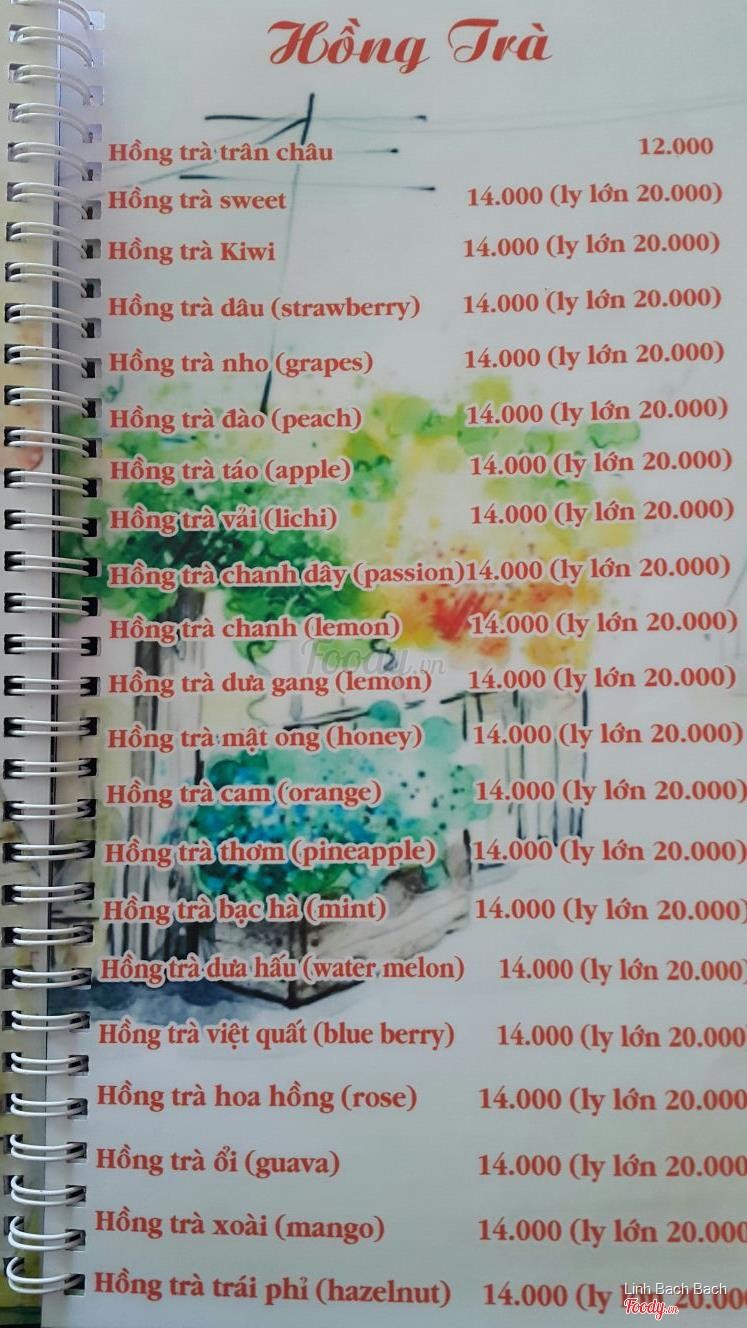 Hồng Trà
Hồng trà trân châu 12.000
Hồng trà sweet 14.000 (ly lớn 20.000)
Hồng trà Kiwi 14.000 (ly lớn 20.000)
Hồng trà dâu (strawberry) 14.000 (ly lớn 20.000)
Hồng trà nho (grapes) 14.000 (ly lớn 20.000)
Hồng trà đào (peach) 14.000 (ly lớn 20.000)
Hồng trà táo (apple) 14.000 (ly lớn 20.000)
Hồng trà vải (lichi) 14.000 (ly lớn 20.000)
Hồng trà chanh dây (passion)14.000 (ly lớn 20.000)
Hồng trà chanh (lemon) 14.000 (ly lớn 20.000)
Foody.vn
Hồng trà dưa gang (lemon) 14.000 (ly lớn 20.000)
Hồng trà mật ong (honey) 14.000 (ly lớn 20.000)
Hồng trà cam (orange) 14.000 (ly lớn 20.000)
Hồng trà thơm (pineapple) 14.000 (ly lớn 20.000)
Hồng trà bạc hà (mint) 14.000 (ly lớn 20.000)
Hồng trà dưa hấu (water melon) 14.000 (ly lớn 20.000)
Hồng trà việt quất (blue berry) 14.000 (ly lớn 20.000
Hồng trà hoa hồng (rose) 14.000 (ly lớn 20.000
Hồng trà ổi (guava) 14.000 (ly lớn 20.000
Hồng trà xoài (mango) 14.000 (ly lớn 20.000
Hồng trà trái phỉ (hazelnut) 14.000 (ly lớn 20.00
Linh Bach Bach
Foody.vn